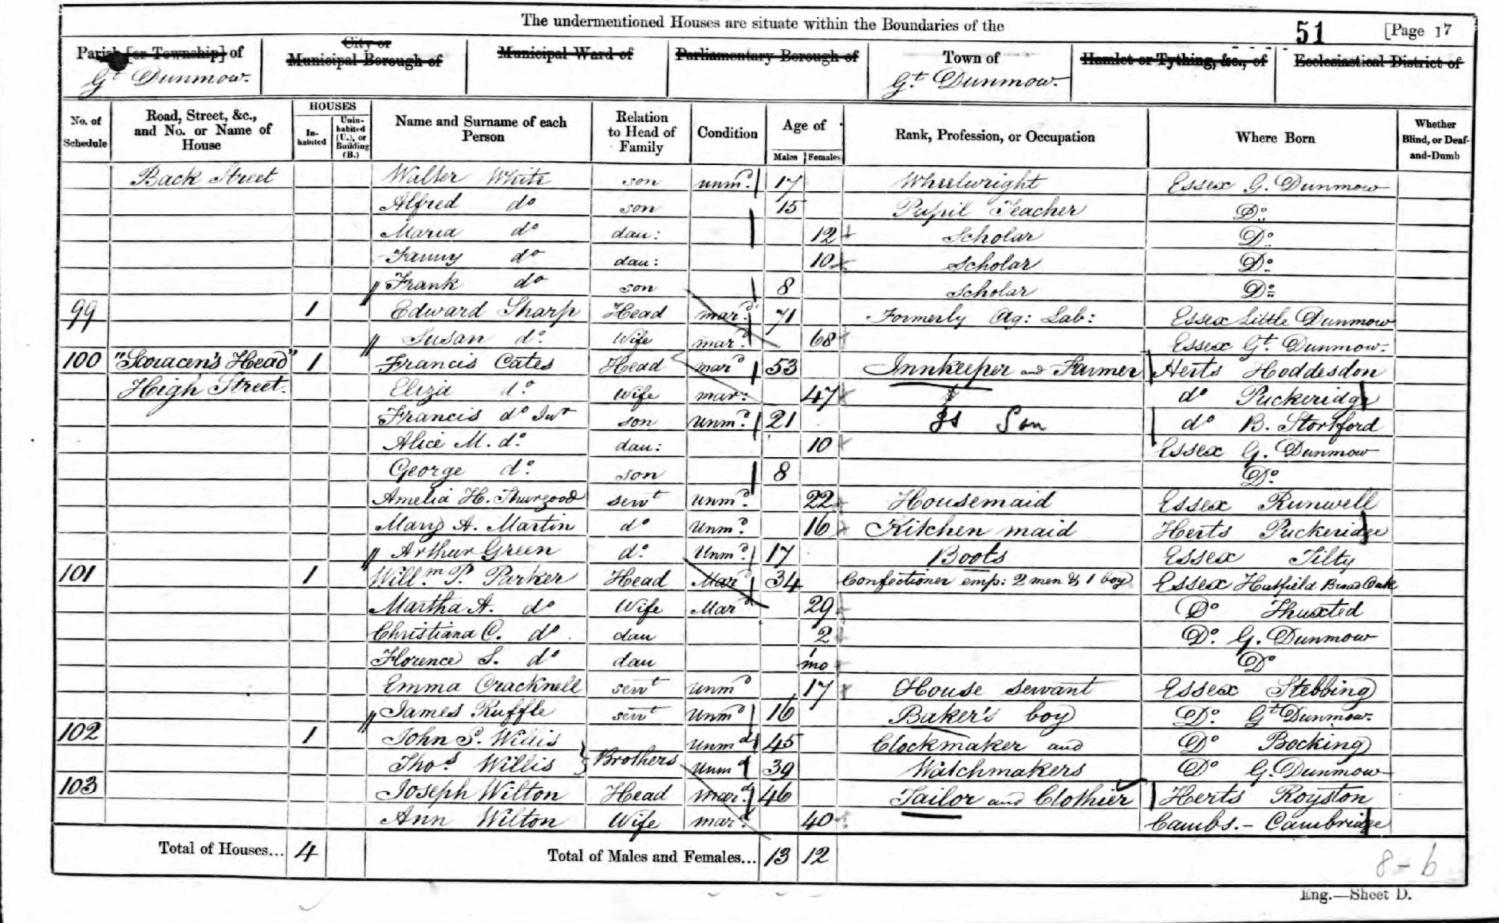 The undermentioned Houses are situate within the Boundaries of the
51 [Page 17
Parish [or Township] of City or Municipal Borough of Municipal Ward of Parliamentary Borough of Town of Hamlet or Tything, &c., of Ecclesiastical District of
Gt Dunmow. Gt Dunmow.
No. of Schedule Road, Street, &c., and No. or Name of House HOUSES Inhabited Uninhabited (U.), or Building (B.) Name and Surname of each Person Relation to Head of Family Condition Age of Males Females Rank, Profession, or Occupation Where Born Whether Blind, or Deaf-and-Dumb
Back Street Walter White son unmd 17 Wheelwright Essex G. Dunmow
Alfred do son 15 Pupil Teacher Do
Maria do dau: 12 Scholar Do
Fanny do dau: 10 Scholar Do
Frank do son 8 Scholar Do
99 1 Edward Sharp Head mard 71 Formerly Ag: Lab: Essex Little Dunmow
Susan do Wife mard 68 Essex Gt Dunmow.
100 "Saracen's Head" 1 Francis Cates Head mard 53 Innkeeper and Farmer Herts Hoddesdon
High Street. Eliza do Wife mar: 47 do Puckeridge
Francis do Junr son Unmd 21 Is Son do B. Stortford
Alice M. do dau: 10 Essex G. Dunmow
George do son 8 Do
Amelia H. Thurgood servt Unmd 22 Housemaid Essex Runwell
Mary A. Martin do Unmd 16 Kitchen maid Herts Puckeridge
Arthur Green do Unmd 17 Boots Essex Tilty
101 1 Willm P. Parker Head Mard 34 Confectioner emp: 2 men & 1 boy Essex Hatfield Broad Oak
Martha A. do Wife Mard 29 Do Thaxted
Christiana C. do dau 2 Do G. Dunmow
Florence S. do dau 1 mo Do
Emma Cracknell servt Unmd 17 House servant Essex Stebbing
James Ruffle servt Unmd 16 Baker's boy Do Gt Dunmow.
102 1 John S. Willis } Brothers Unmd 45 Clockmaker and Do Bocking
Thos Willis Unmd 39 Watchmakers Do G. Dunmow
103 Joseph Wilton Head mard 46 Tailor and Clothier Herts Royston
Ann Wilton Wife mard 40 Cambs. - Cambridge
Total of Houses... 4 Total of Males and Females... 13 12
8-6
Eng.—Sheet D.